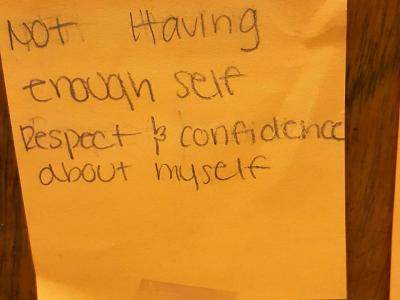 Not Having
enough self
Respect & confidence
about myself